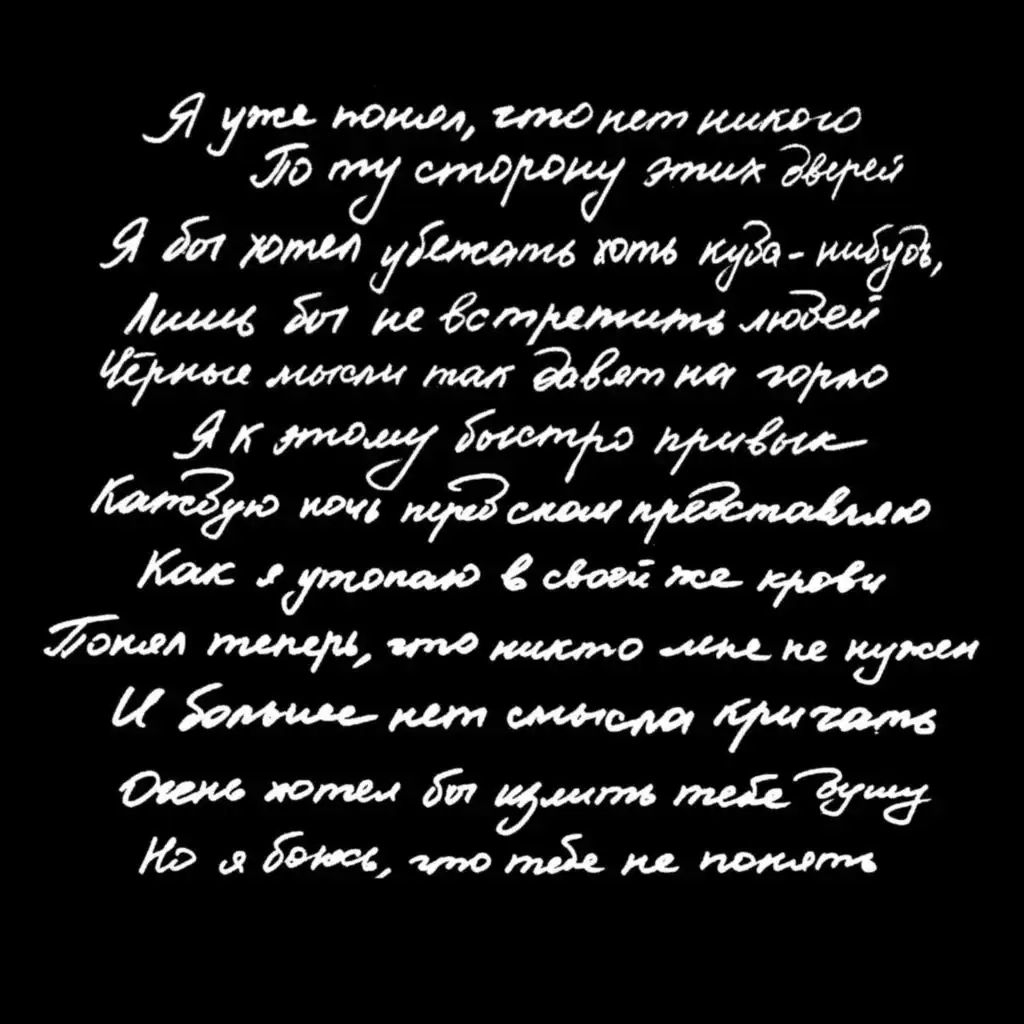 Я уже понял, что нет никого
По ту сторону этих дверей
Я бы хотел убежать хоть куда-нибудь,
Лишь бы не встретить людей
Чёрные мысли так давят на горло
Я к этому быстро привык
Каждую ночь перед сном представляю
Как я утопаю в своей же крови
Понял теперь, что никто мне не нужен
И больше нет смысла кричать
Очень хотел бы излить тебе душу
Но я боюсь, что тебе не понять